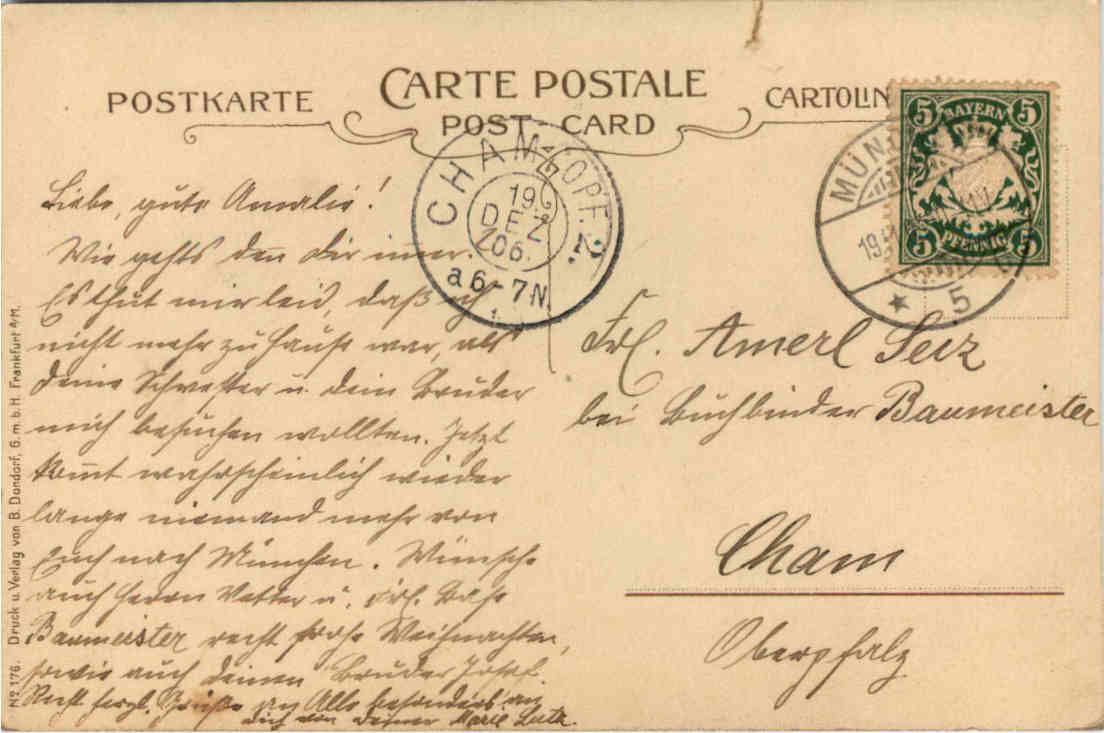 POSTKARTE
CARTE POSTALE
CARTOLIN
POST-CARD
5 BAYERN 5
5 PFENNIG 5
MÜN
5
CHAM OPF. 2.
19
DEZ
06.
a 6-7 N.
Liebe, gute Amalie!
Wie gehts den dir immer.
Es thut mir leid, daß ich
nicht mehr zu Hause war, als
deine Schwester u. dein Bruder
mich besuchen wollten. Jetzt
kom̅t wahrscheinlich wieder
lange niemand mehr von
Euch nach München. Wünsche
auch Herrn Vetter u. Frl. Base
Baumeister recht frohe Weihnachten,
sowie auch deinen Bruder Josef.
Recht herzl. Grüße an Alle besonders an
dich von deiner Marie
Frl. Amerl Seiz
bei Buchbinder Baumeister
Cham
Oberpfalz
No 176. Druck u. Verlag von B. Dondorf, G.m.b.H. Frankfurt a/M.